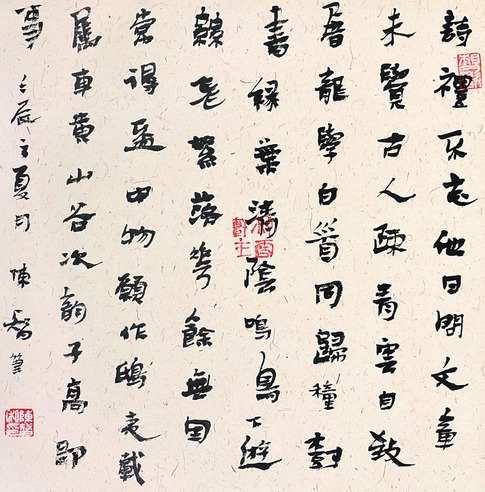 詩禮不忘他日問文章
未覺古人疎青雲自致
屠龍學白首同歸種樹
書綠葉清陰鳴鳥下遊
絲飛絮落花餘無因
常得盃中物願作鴟夷載
屬車黃山谷次韻子高即
事 壬辰立夏 陳智 筆